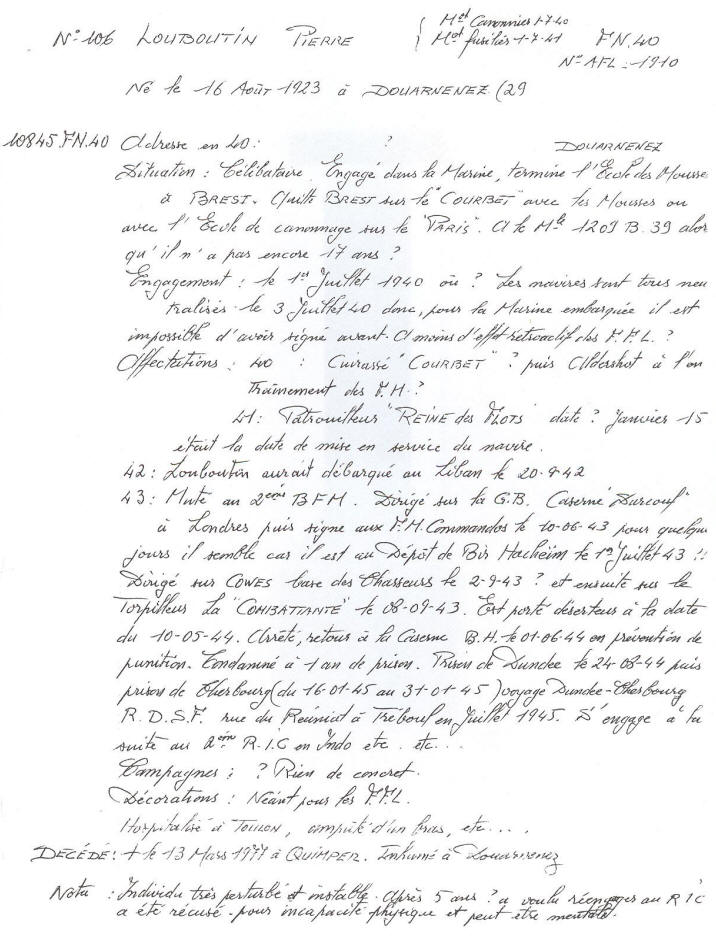 Mot Canonnier 1-7-40
N° 106 LOUBOUTIN PIERRE Mot fusilier 1-7-41 F.N.40
N° AFL : 1910
Né le 16 Août 1923 à DOUARNENEZ (29
10845.FN.40 Adresse en 40 : ? DOUARNENEZ
Situation : Célibataire. Engagé dans la Marine, termine l'Ecole des Mousse
à BREST. Quitte BREST sur le "COURBET" avec les Mousses ou
avec l'Ecole de canonnage sur le "PARIS". A le Mle 1209 B.39 alor
qu'il n'a pas encore 17 ans ?
Engagement : le 1er Juillet 1940 où ? Les navires sont tous neu
tralisés le 3 Juillet 40 donc, pour la Marine embarquée il est
impossible d'avoir signé avant. A moins d'effet rétroactif des F.F.L. ?
Affectations : 40 : Cuirassé "COURBET" ? puis Aldershot à l'en
traînement des F.M. ?
41 : Patrouilleur "REINE des FLOTS" date ? Janvier 15
était la date de mise en service du navire.
42 : Louboutin aurait débarqué au Liban le 20-9-42
43 : Muté au 2ème BFM. Dirigé sur la G.B. Caserne "Surcouf"
à Londres puis signe aux F.M. Commandos le 10-06-43 pour quelque
jours il semble car il est au Dépôt de Bir Hacheim le 1er Juillet 43 !!
Dirigé sur COWES base des Chasseurs le 2-9-43 ? et ensuite sur le
Torpilleur La "COMBATTANTE" le 08-09-43. Est porté déserteur à la date
du 10-05-44. Arrêté, retour à la Caserne B.H. le 01-06-44 en prévention de
punition. Condamné à 1 an de prison. Prison de Dundee le 24-08-44 puis
prison de Cherbourg (du 16-01-45 au 31-01-45) voyage Dundee-Cherbourg
R.D.S.F. rue du à Tréboul en Juillet 1945. S'engage à la
suite au 2ème R.I.C en Indo etc. etc...
Campagnes : ? Rien de concret.
Décorations : Néant pour les F.F.L.
Hospitalisé à TOULON, amputé d'un bras, etc....
DECÉDÉ : + le 13 Mars 1977 à QUIMPER. Inhumé à Douarnenez
Nota : Individu très perturbé et instable. Après 5 ans ? a voulu réengager au R I C
a été récusé - pour incapacité physique et peut être mentale.